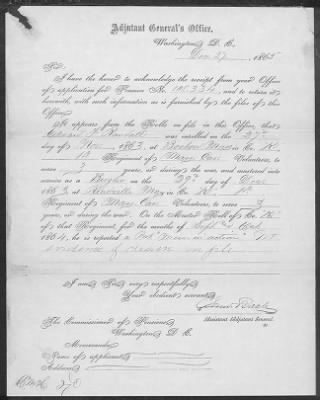 Adjutant General's Office,
Washington, D. C.
Dec 27, 1865
Sir:
I have the honor to acknowledge the receipt from your Office
of application for Pension No. 100,334, and to return it
herewith, with such information as is furnished by the files of this
Office.
It appears from the Rolls on file in this Office, that
was enrolled on the
day of Nov, 1863, at Boston Mass in Co. K.
Regiment of Mass Cav Volunteers, to
serve 3 years, or during the war, and mustered into
service as a on the 29" day of Dec
1863, at Mass in Co. K.
Regiment of Mass Cav Volunteers, to serve 3
years, or during the war. On the Muster Roll of Co. K
of that Regiment, for the months of Sept & Oct
1864, he is reported
evidence of on file
I am, Sir, very respectfully,
Your obedient servant,
Assistant Adjutant General.
The Commissioner of Pensions,
Washington, D. C.
Memoranda:
Name of applicant,
Address,